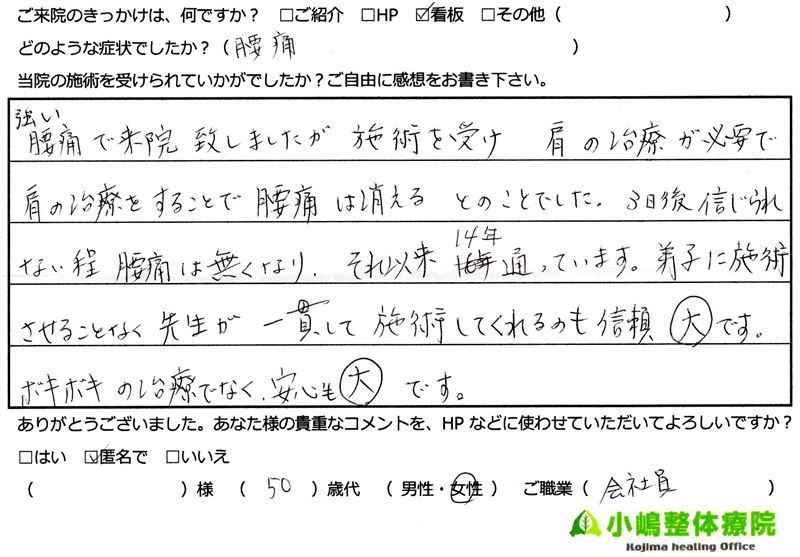 ご来院のきっかけは、何ですか？ □ご紹介 □HP ☑看板 □その他（ ）
どのような症状でしたか？（腰痛 ）
当院の施術を受けられていかがでしたか？ご自由に感想をお書き下さい。
強い
腰痛で来院致しましたが 施術を受け 肩の治療が必要で
肩の治療をすることで腰痛は消える とのことでした. 3日後信じられ
14年
ない程 腰痛は無くなり. それ以来 通っています。弟子に施術
させることなく先生が 一貫して 施術してくれるのも信頼 大 です。
ボキボキの治療でなく、安心も 大 です。
ありがとうございました。あなた様の貴重なコメントを、HPなどに使わせていただいてよろしいですか？
□はい ☑匿名で □いいえ
（ ）様 （ 50 ）歳代 （ 男性・女性 ） ご職業（ 会社員 ）
小嶋整体療院
Kojima healing Office